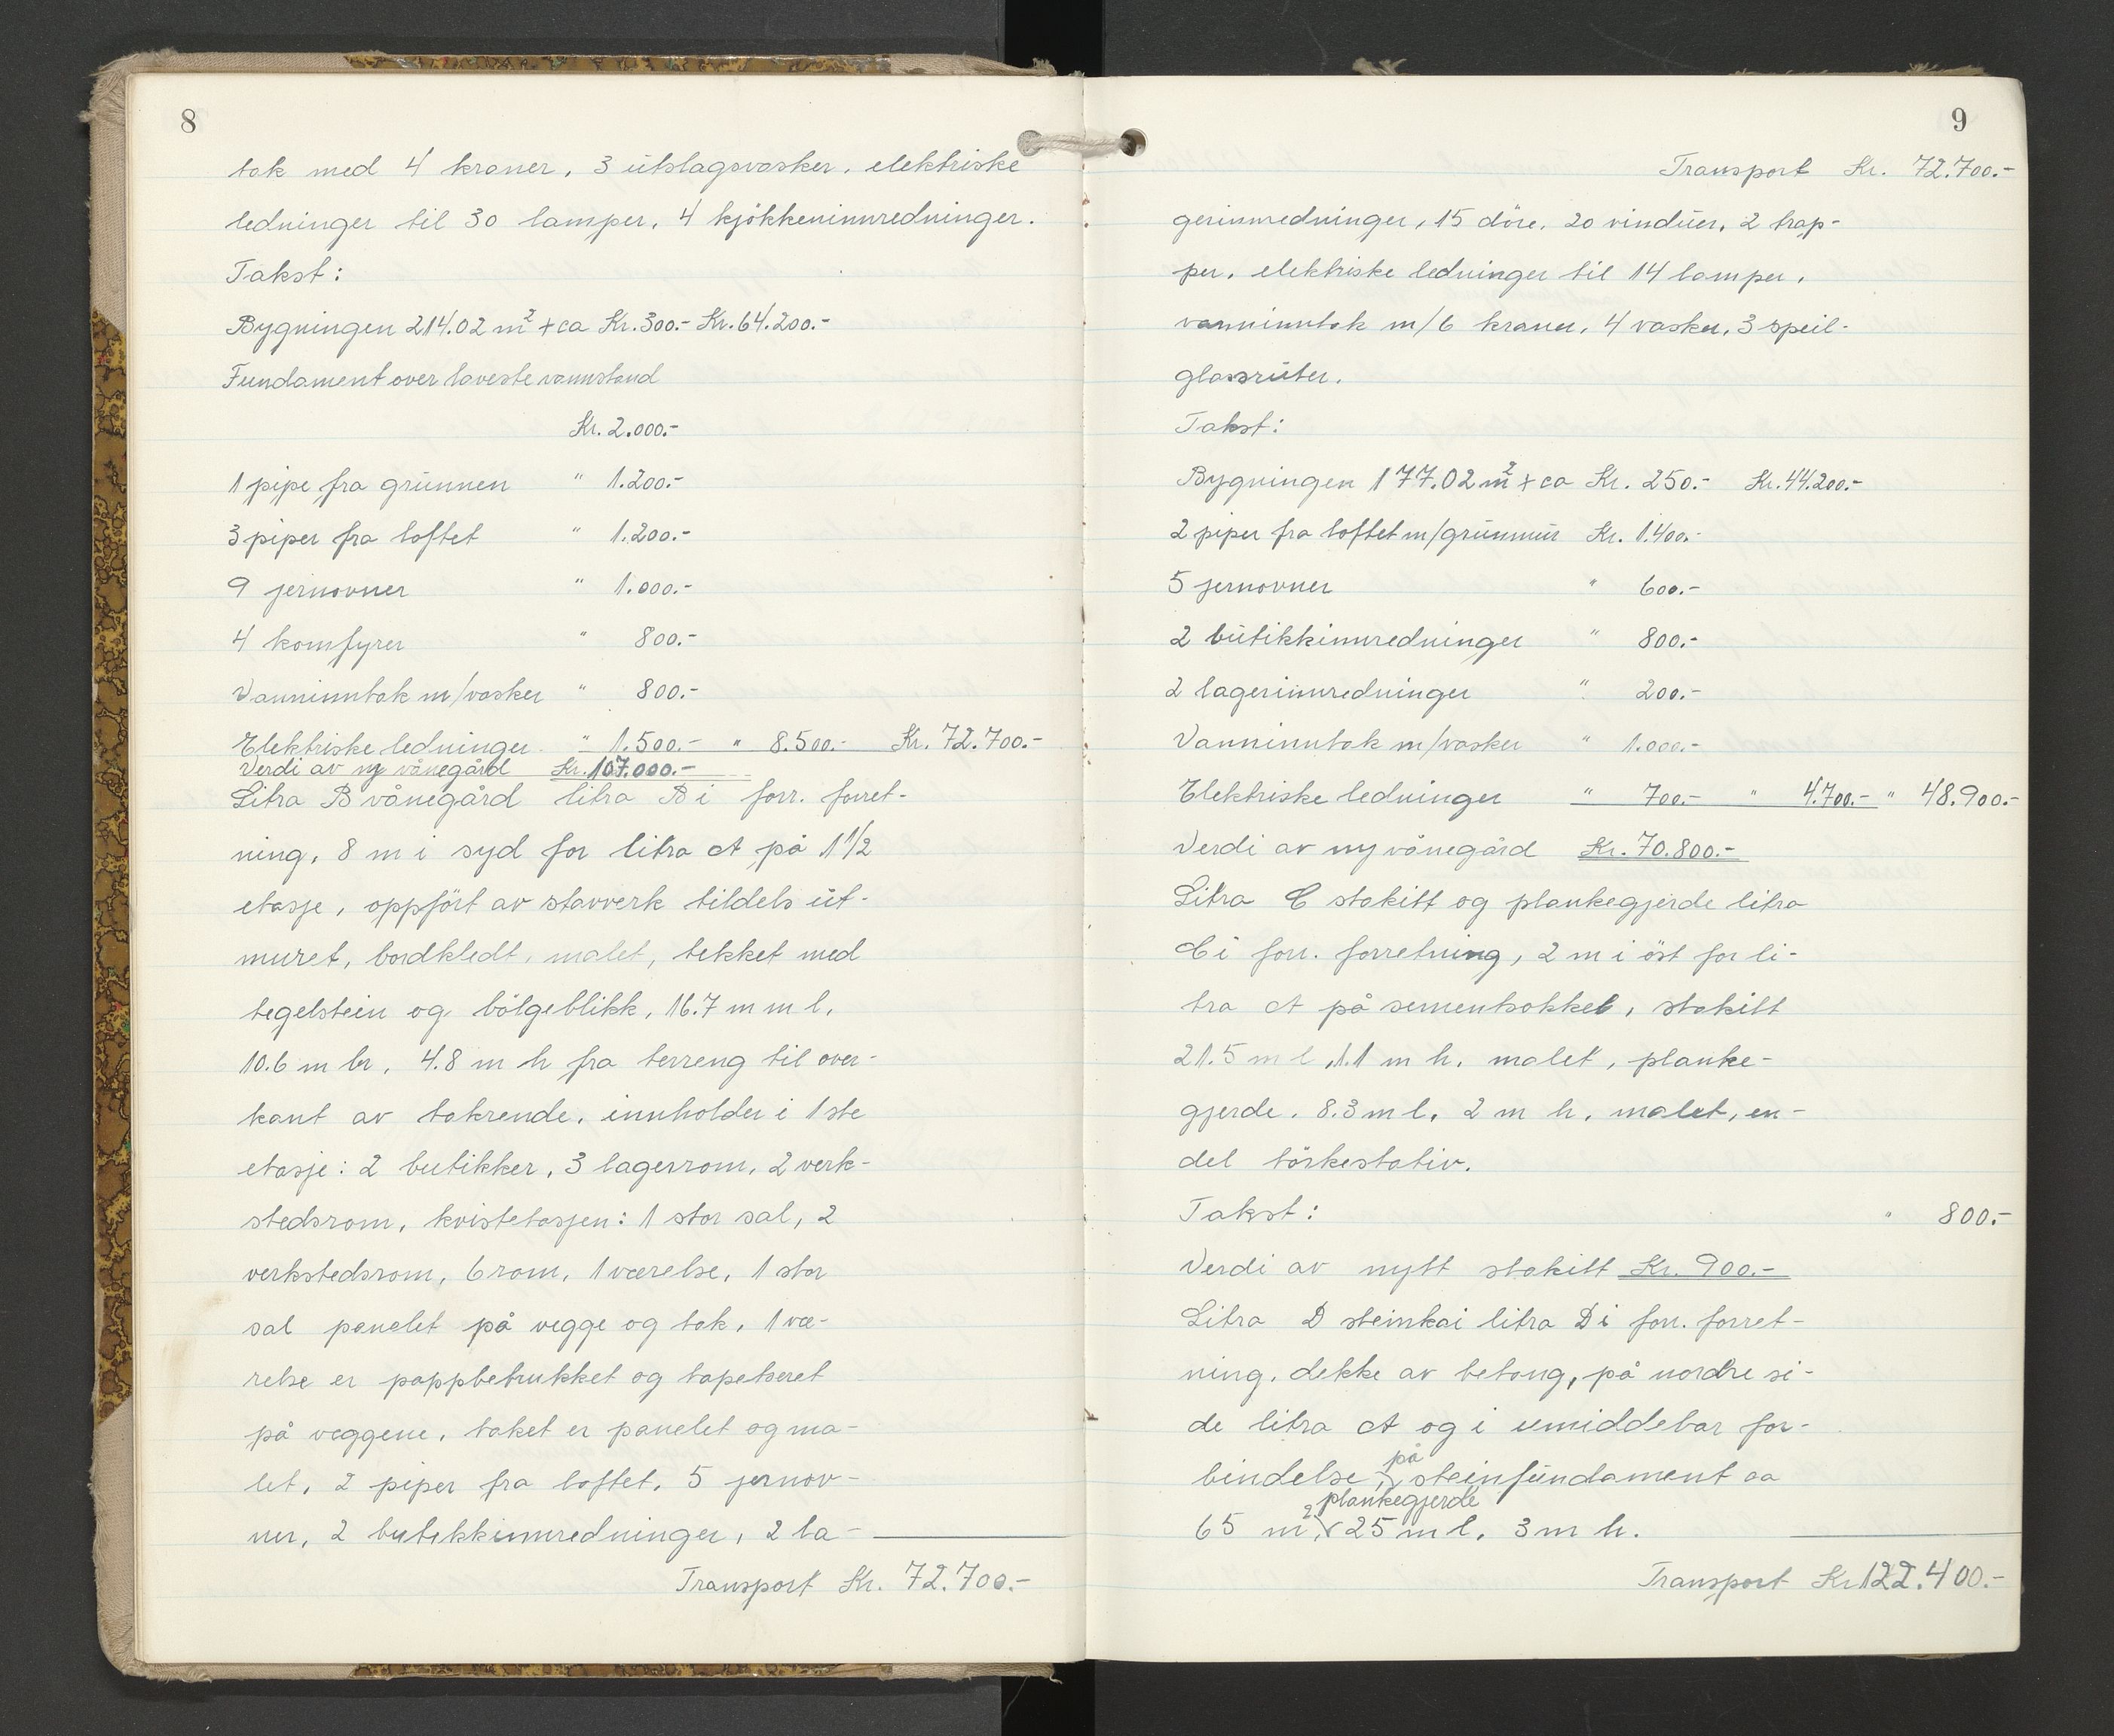 8
tak med 4 kraner, 3 utslagsvasker, elektriske
ledninger til 30 lamper, 4 kjökkeninnredninger.
Takst:
Bygningen 214.02 m² + ca Kr. 300.- Kr. 64.200.-
Fundament over laveste vannstand
Kr. 2.000.-
1 pipe fra grunnen " 1.200.-
3 piper fra loftet " 1.200.-
9 jernovner " 1.000.-
4 komfyrer " 800.-
Vanninntak m/vasker " 800.-
Elektriske ledninger " 1.500.- " 8.500.- Kr. 72.700.-
Verdi av ny vånegård Kr. 107.000.-
Litra B vånegård litra B i forr. forret-
ning, 8 m i syd for litra A på 1 1/2
etasje, oppfört av stavverk tildels ut-
muret, bordkledt, malet, tekket med
tegelstein og bölgeblikk, 16.7 m m l,
10.6 m br, 4.8 m h fra terreng til over-
kant av takrende, innholder i 1ste
etasje: 2 butikker, 3 lagerrom, 2 verk-
stedsrom, kvistetasjen: 1 stor sal, 2
verkstedsrom, 6 rom, 1 værelse, 1 stor
sal panelet på vegge og tak, 1 væ-
relse er pappbetrukket og tapetseret
på veggene, taket er panelet og ma-
let, 2 piper fra loftet, 5 jernov-
ner, 2 butikkinnredninger, 2 la-
Transport Kr. 72.700.-
9
Transport Kr. 72.700.-
gerinnredninger, 15 döre, 20 vinduer, 2 trap-
per, elektriske ledninger til 14 lamper,
vanninntak m/6 kraner, 4 vasker, 3 speil-
glassruter.
Takst:
Bygningen 177.02 m² + ca Kr. 250.- Kr. 44.200.-
2 piper fra loftet m/grunmur Kr. 1.400.-
5 jernovner " 600.-
2 butikkinnredninger " 800.-
2 lagerinnredninger " 200.-
Vanninntak m/vasker " 1.000.-
Elektriske ledninger " 700.- " 4.700.- " 48.900.-
Verdi av ny vånegård Kr. 70.800.-
Litra C stakitt og plankegjerde litra
C i forr. forretning, 2 m i öst for li-
tra A på sementsokkel, stakitt
21.5 m l, 1.1 m h, malet, planke-
gjerde, 8.3 m l, 2 m h, malet, en-
del törkestativ.
Takst: " 800.-
Verdi av nytt stakitt Kr. 900.-
Litra D steinkai litra D i forr. forret-
ning, dekke av betong, på nordre si-
de litra A og i umiddebar for-
bindelse, på steinfundament aa
65 m², plankegjerde 25 m l, 3 m h.
Transport Kr 122.400.-